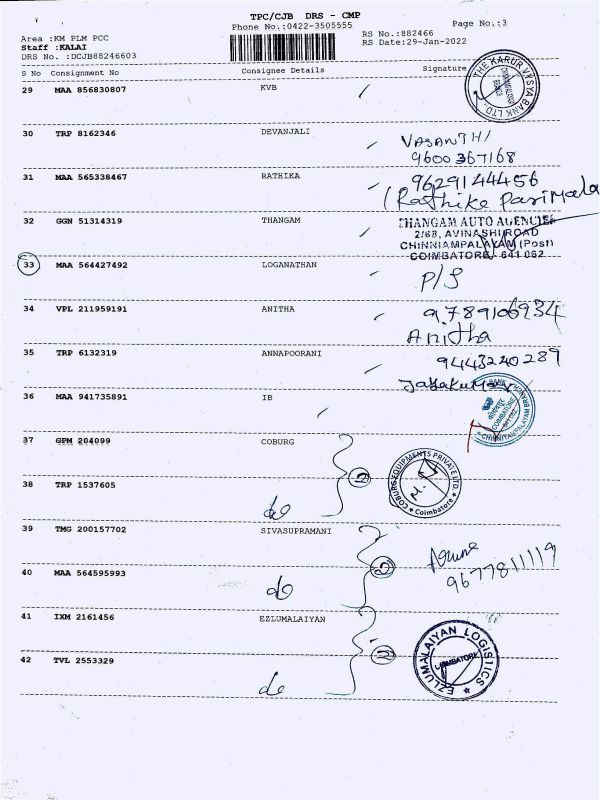 TPC/CJB DRS - CMP
Phone No.:0422-3505555
Page No.:3
Area :KM PLM PCC
Staff :KALAI
DRS No. :DCJB88246603
RS No.:882466
RS Date:29-Jan-2022
S No Consignment No Consignee Details Signature
29 MAA 856830807 KVB
THE KARUR VYSYA BANK LTD.
30 TRP 8162346 DEVANJALI
VASANTHI
9600367168
31 MAA 565338467 RATHIKA
9629144456
(Rathike Parimala
32 GGN 51314319 THANGAM
THANGAM AUTO AGENCIES
2/68, AVINASHI ROAD
CHINNIAMPALAYAM (Post)
COIMBATORE - 641 062
33 MAA 564427492 LOGANATHAN
P/S
34 VPL 211959191 ANITHA
9789106934
Anitha
35 TRP 6132319 ANNAPOORANI
9443240289
Jayakumar
36 MAA 941735891 IB
BANK
COIMBATORE
CHINNIYAMPALAYAM BRANCH
37 GPM 204099 COBURG
COBURG EQUIPMENTS PRIVATE LTD.
Coimbatore
38 TRP 1537605 do
39 TMG 200157702 SIVASUPRAMANI
9677811119
40 MAA 564595993 do
41 IXM 2161456 EZLUMALAIYAN
EZLUMALAIYAN LOGISTICS
COIMBATORE
42 TVL 2553329 do